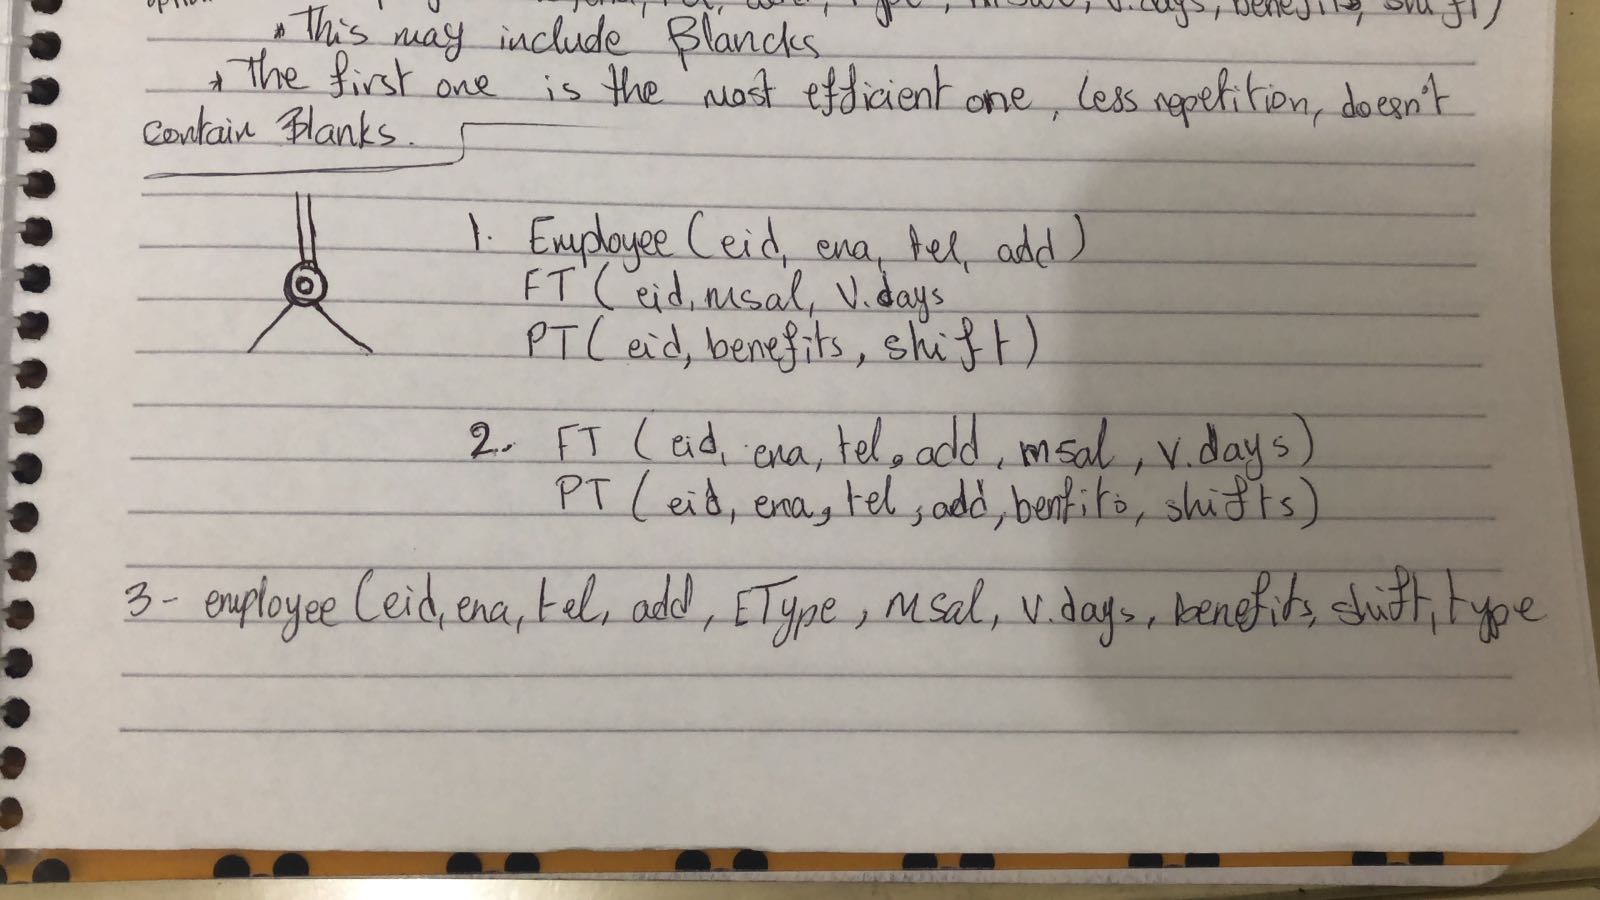 option type, msal, v.days, benefits, shift)
* This may include Blancks
* The first one is the most efficient one, less repetition, doesn't
contain Blanks.
1. Employee (eid, ena, tel, add)
FT ( eid, msal, V.days
PT ( eid, benefits, shift)
2. FT ( eid, ena, tel, add, msal, v.days)
PT ( eid, ena, tel, add, benfits, shifts)
3- employee (eid, ena, tel, add, EType, msal, v.days, benefits, shift, type